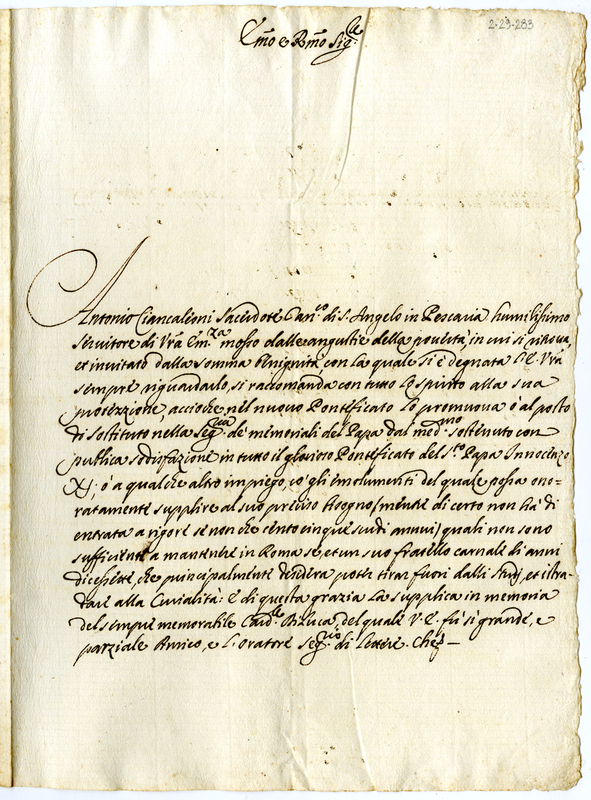 2-29-283
Em̃o e Rm̃o Sig.re
Antonio Ciancaleoni Sacerdote Can.co di S. Angelo in Pescaria humilissimo
servitore di Vrã Em.za mosso dalle angustie della povertà, in cui si ritrova,
et invitato dalla somma benignità, con la quale si è degnata l'E. Vrã
sempre riguardarlo, si raccomanda con tutto lo spirito alla sua
protezzione, acciochè nel nuovo Pontificato lo promuova ò al posto
di sostituto nella Seg.ria de' memoriali del Papa dal med.mo sostenuto con
publica sodisfazione in tutto il glorioso Pontificato del S.to Papa Innocenzo
XI; ò a qualche altro impiego, cò gli emolumenti del quale possa ono=
ratamente supplire al suo preciso bisogno (mentre di certo non hà di
entrata a rigore se non che cento cinque scudi annui) quali non sono
sufficienti a mantenere in Roma se, et un suo fratello carnale di anni
dicesette, che principalmente desidera poter tirar fuori dalli studj, et istra-
dare alla Curialità: E di questa grazia la supplica in memoria
del sempre memorabile Card.le del quale V. E. fù sì grande, e
parziale Amico, e l'Oratore Seg.rio di lettere. Che